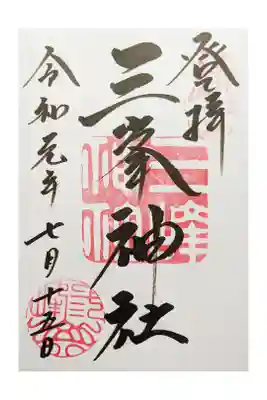 登拝
三峯神社
令和元年七月十五日